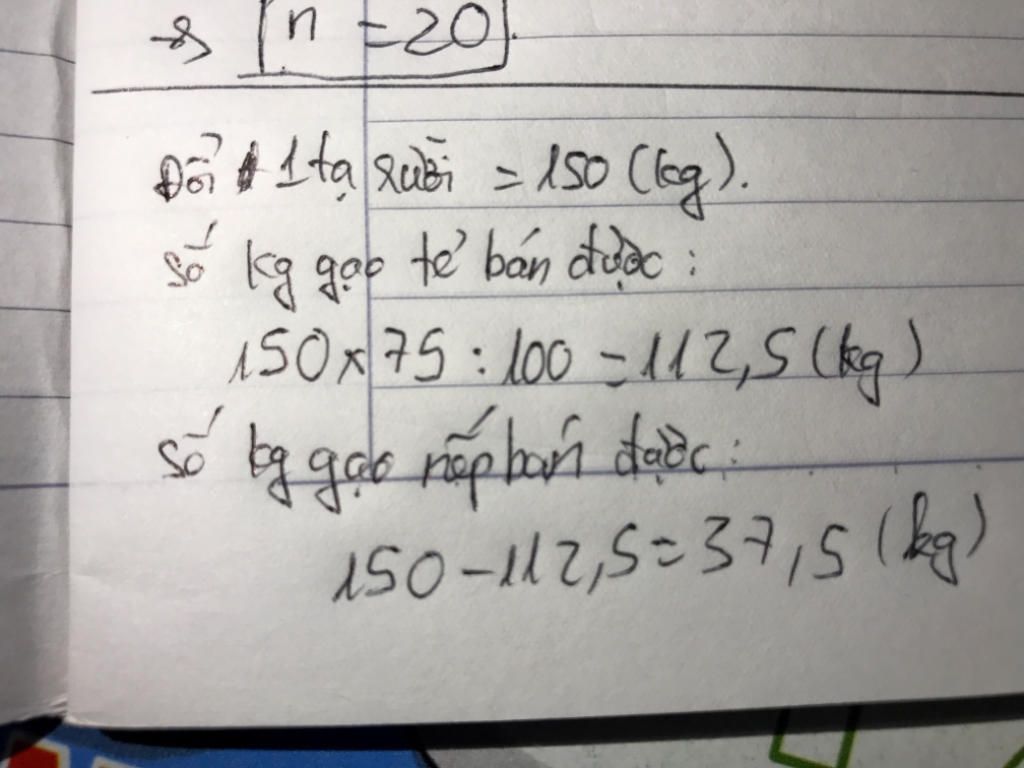 → n = 20.
Đổi 1 tạ rưỡi = 150 (kg).
Số kg gạo tẻ bán được :
150 x 75 : 100 = 112,5 (kg)
Số kg gạo nếp bán được :
150 - 112,5 = 37,5 (kg)